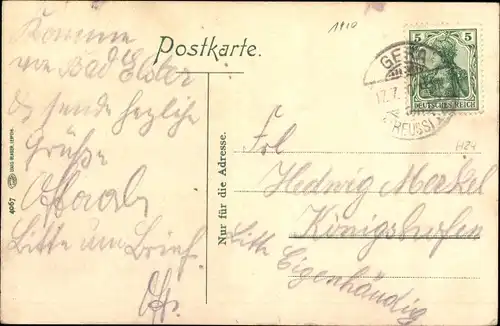 1910
Postkarte.
Komme
von Bad Elster
sende herzliche
Grüße
Bitte um Brief
Nur für die Adresse.
4067
5 5
DEUTSCHES REICH
GERA
17.7.
(REUSS)
H24
Frl
Hedwig Merkel
Königshofen
Bitte Eigenhändig